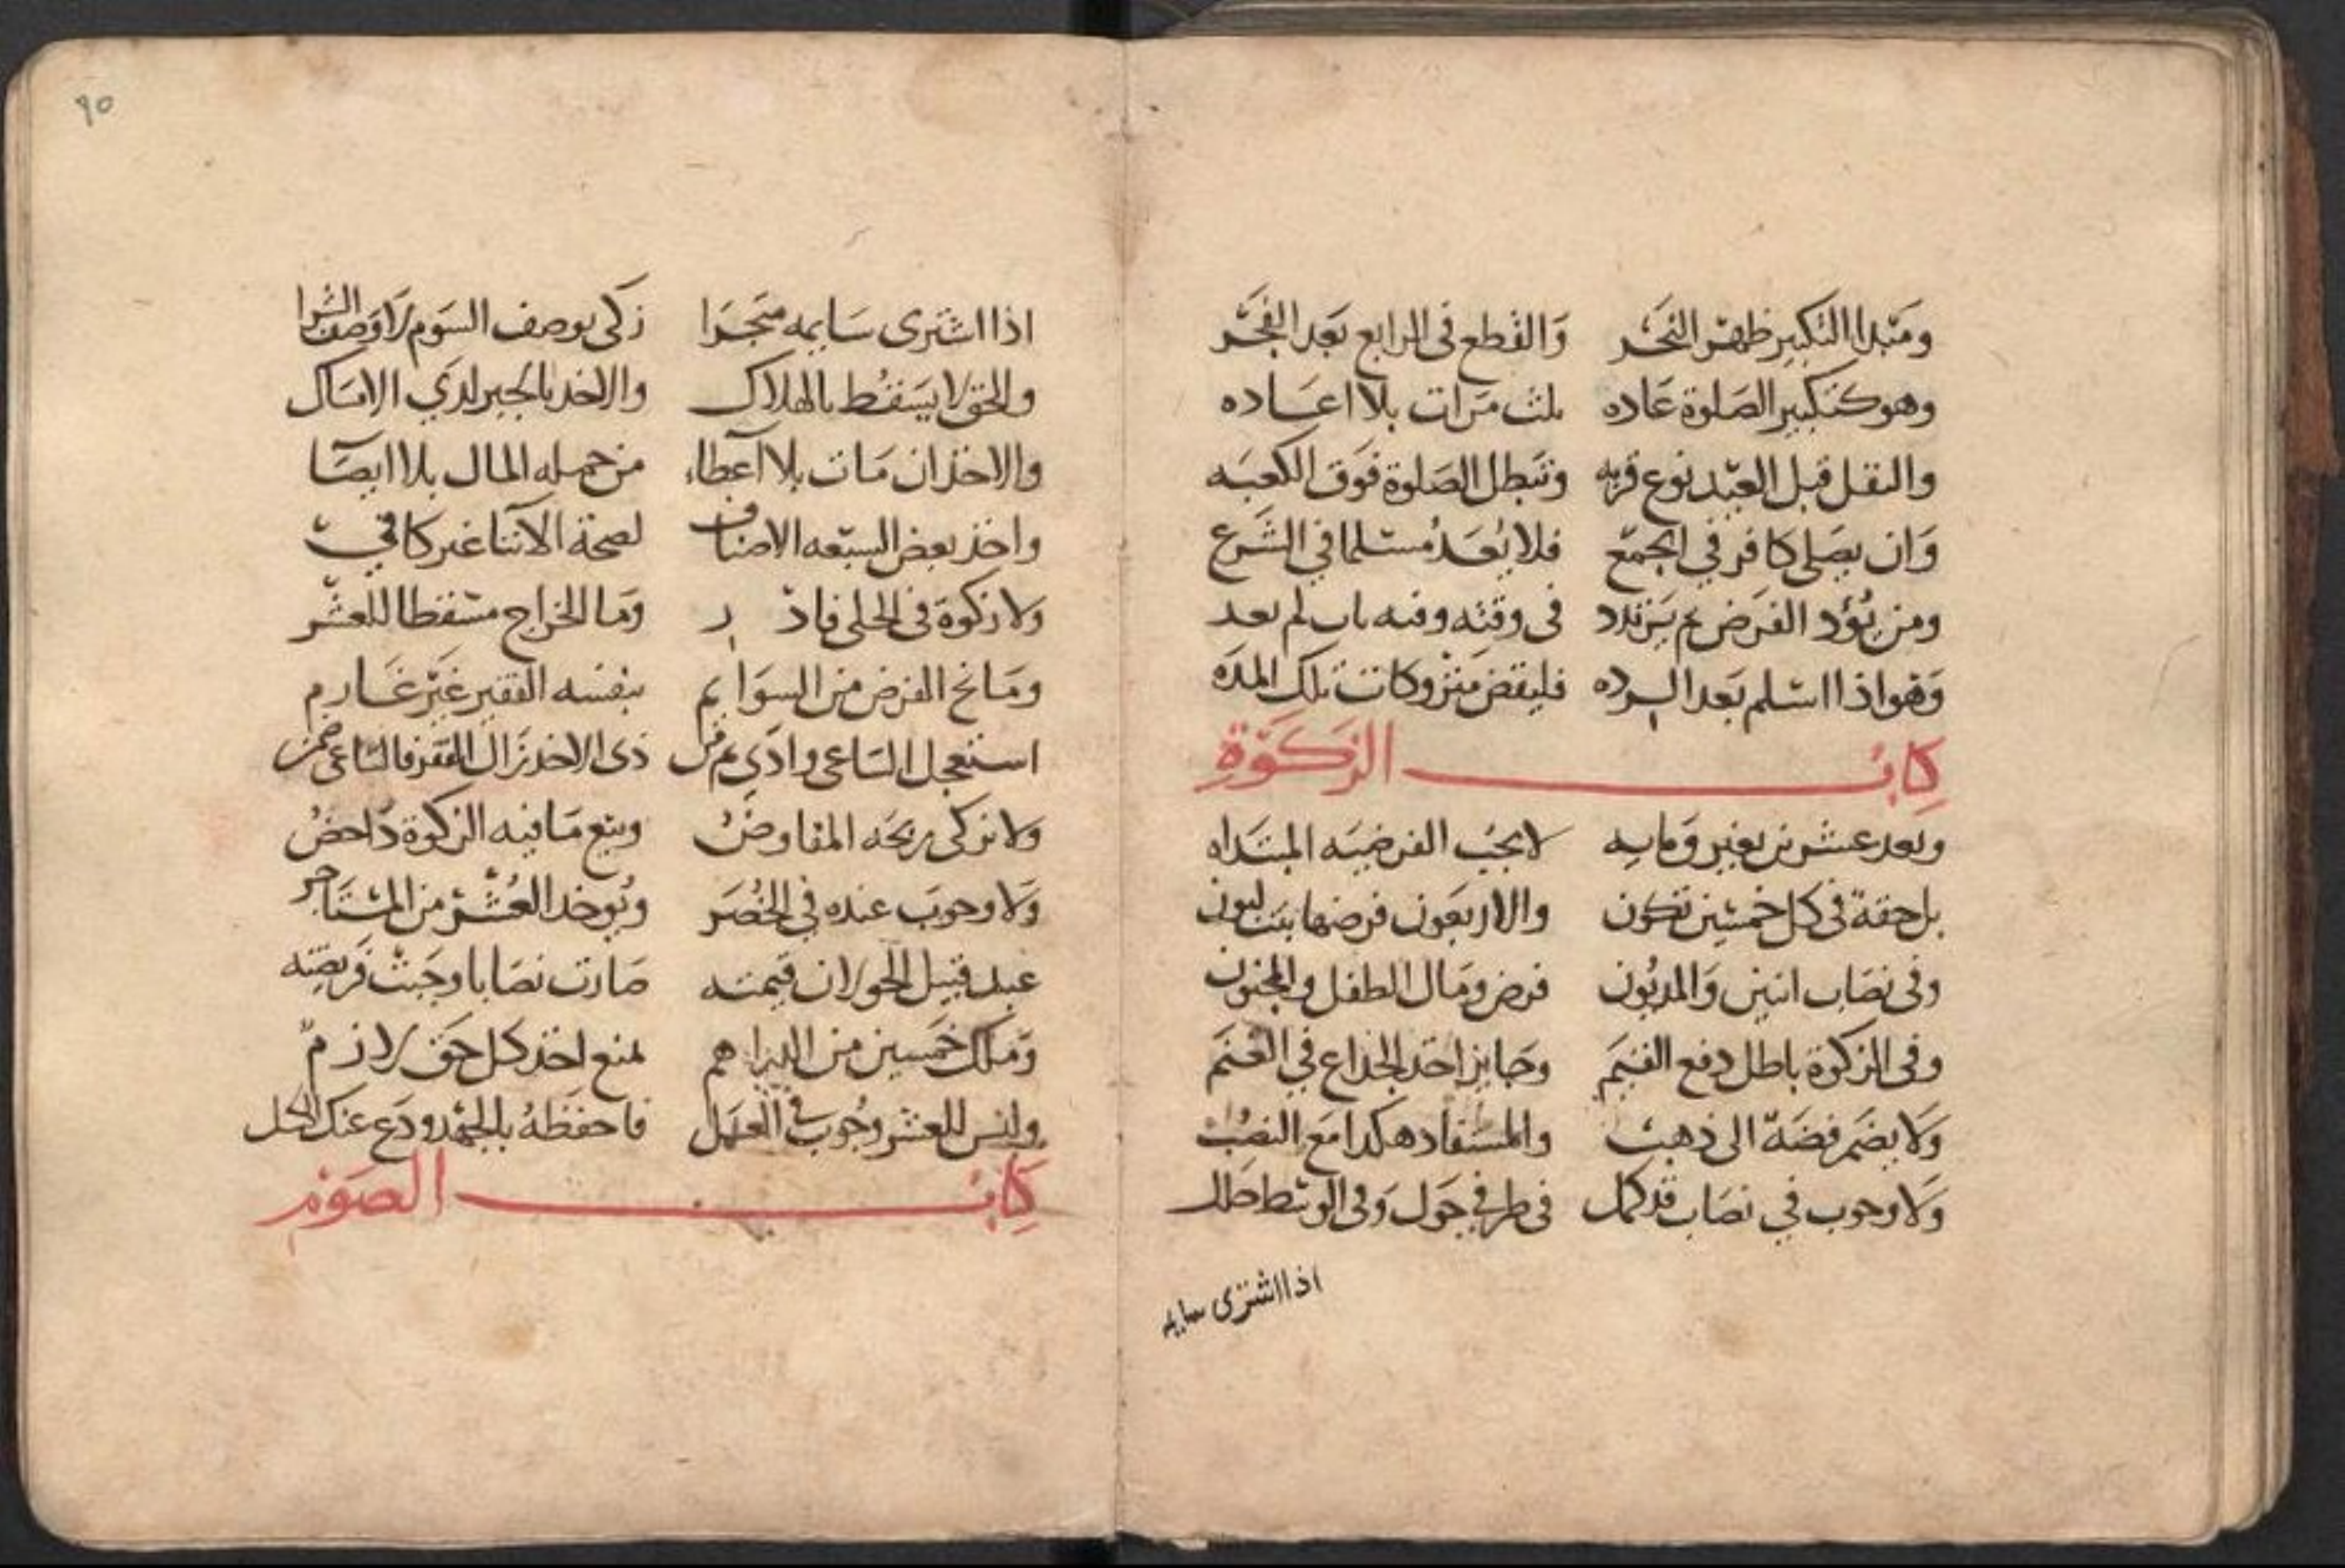 ومبدا التكبير ظهر النحر والقطع في الرابع بعد الفجر
وهو كتكبير الصلوة عاده ثلث مرات بلا اعاده
والنفل قبل العيد نوع قربه وتبطل الصلوة فوق الكعبه
وان يصلي كافر في الجمع فلا يعد مسلما في الشرع
ومن يؤد الفرض ثم يرتدد في وقته وفيه تاب لم يعد
وهو اذا اسلم بعد الرده فليقض متروكات تلك المده
كتاب الزكوة
وبعد عشرين بعير ومايه لا يجب الفرضيه المبتداه
بل حقة في كل خمسين تكون والاربعون فرضها بنت لبون
وفي نصاب اثنين والمديون فرض ومال الطفل والمجنون
وفي الزكوة باطل دفع القيم وجايز اخذ الجذاع في الغنم
ولا يضم فضة الى ذهب والمستفاد هكذا مع النصب
ولا وجوب في نصاب قد كمل في طرفي حول وفي الوسط
اذا اشترى سايمه
٩٥
اذا اشترى سايمه متجرا زكى بوصف السوم لا وصف الشرا
والحق لا يسقط بالهلاك والاخذ بالجبر لدي الامساك
والاخذ ان مات بلا اعطاء من جمله المال بلا ايصا
واخذ بعض السبعه الاصناف لصحة الايتا غير كافي
ولا زكوة في الحلي فادر وما الخراج مسقطا للعشر
ومانح الفرض من السوايم بنفسه الفقير غير غارم
استعجل الساعي وادي ثم من ذي الاخذ زال الفقر فالساعي ضمن
ولا يزكى ربحه المفاوض وبيع ما فيه الزكوة داحض
ولا وجوب عنده في الخضر ويوخذ العشر من المستاجر
عبد قتيل الحر لان قيمته صارت نصابا وجبت فريضته
وملك خمسين من الدراهم لمنع اخذ كل حق لازم
وليس للعشر وجوب في العسل فاحفظه بالجهد ودع عنك الكسل
كتاب الصوم